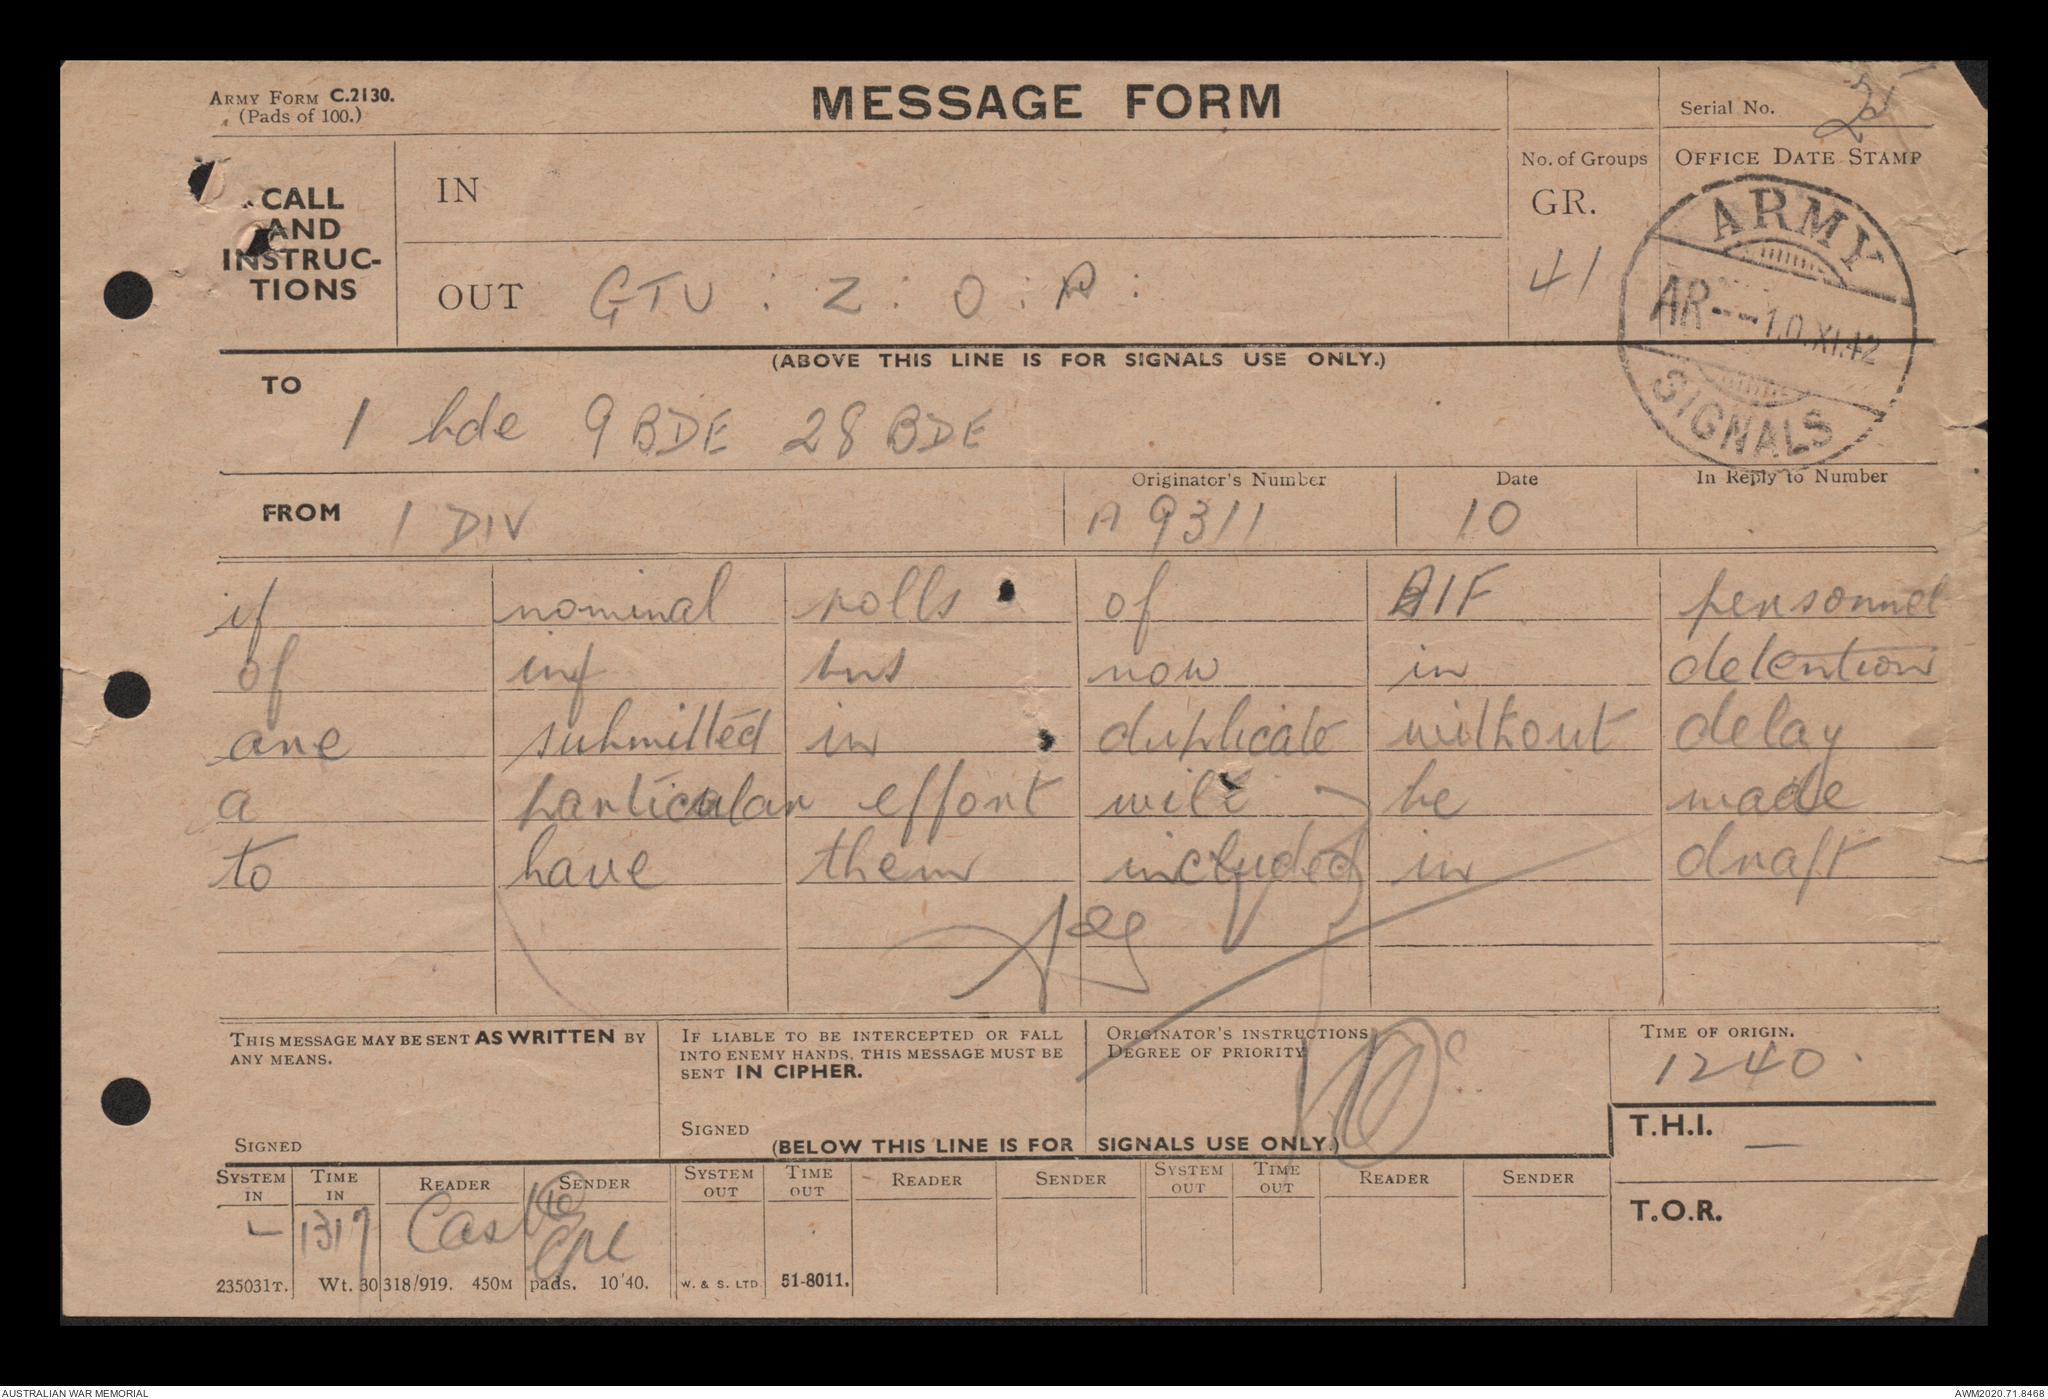 ARMY FORM C.2130.
(Pads of 100.)
MESSAGE FORM
Serial No.
CALL
AND
INSTRUC-
TIONS
IN
No. of Groups
GR.
41
OFFICE DATE STAMP
ARMY
AR---10.XI.42
SIGNALS
OUT GTU : Z : O : P :
(ABOVE THIS LINE IS FOR SIGNALS USE ONLY.)
TO
1 bde 9 BDE 28 BDE
FROM 1 DIV
Originator's Number
A 9311
Date
10
In Reply to Number
if nominal rolls of AIF personnel
of inf bns now in detention
are submitted in duplicate without delay
a particular effort will be made
to have them included in draft
THIS MESSAGE MAY BE SENT AS WRITTEN BY
ANY MEANS.
SIGNED
IF LIABLE TO BE INTERCEPTED OR FALL
INTO ENEMY HANDS, THIS MESSAGE MUST BE
SENT IN CIPHER.
SIGNED
ORIGINATOR'S INSTRUCTIONS
DEGREE OF PRIORITY
TIME OF ORIGIN.
1240.
T.H.I. —
(BELOW THIS LINE IS FOR SIGNALS USE ONLY.)
SYSTEM IN TIME IN READER SENDER SYSTEM OUT TIME OUT READER SENDER SYSTEM OUT TIME OUT READER SENDER
T.O.R.
1317 Cpl
235031T. Wt. 30318/919. 450M pads. 10'40. W. & S. LTD 51-8011.
AUSTRALIAN WAR MEMORIAL
AWM2020.71.8468